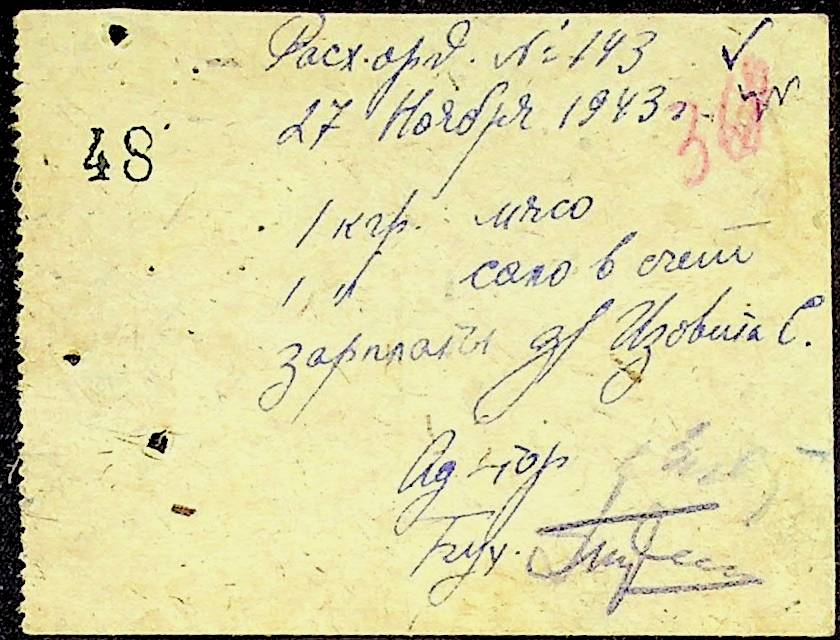 Расх. орд. № 143
27 Ноября 1943 г.
36
48
1 кгр. мясо
1 " сало в счет
зарплаты Изовита С.
Ад-тор
Бух.